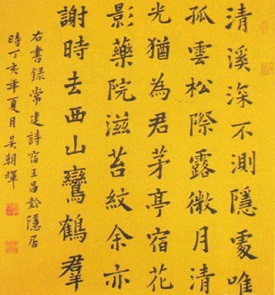 清溪深不測隱處唯
孤雲松際露微月清
光猶為君茅亭宿花
影藥院滋苔紋余亦
謝時去西山鸞鶴羣
右書錄常建詩宿王昌齡隱居
時丁亥年夏月吳朝暉